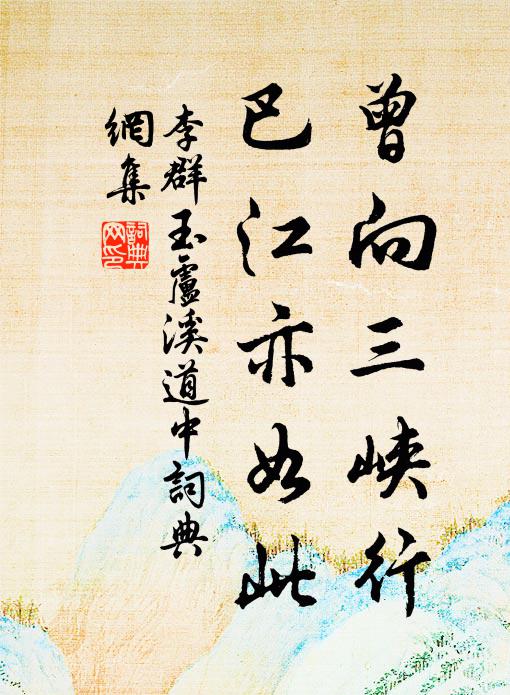 曾向三峡行
巴江亦如此
李群玉盧溪道中詞典
網集
詞典
网印